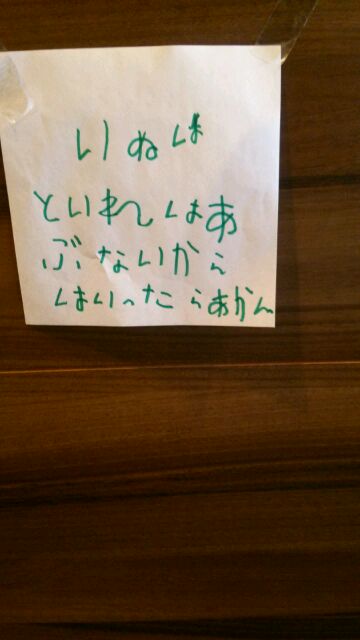 いぬは
といれはあ
ぶないから
はいったらあかん